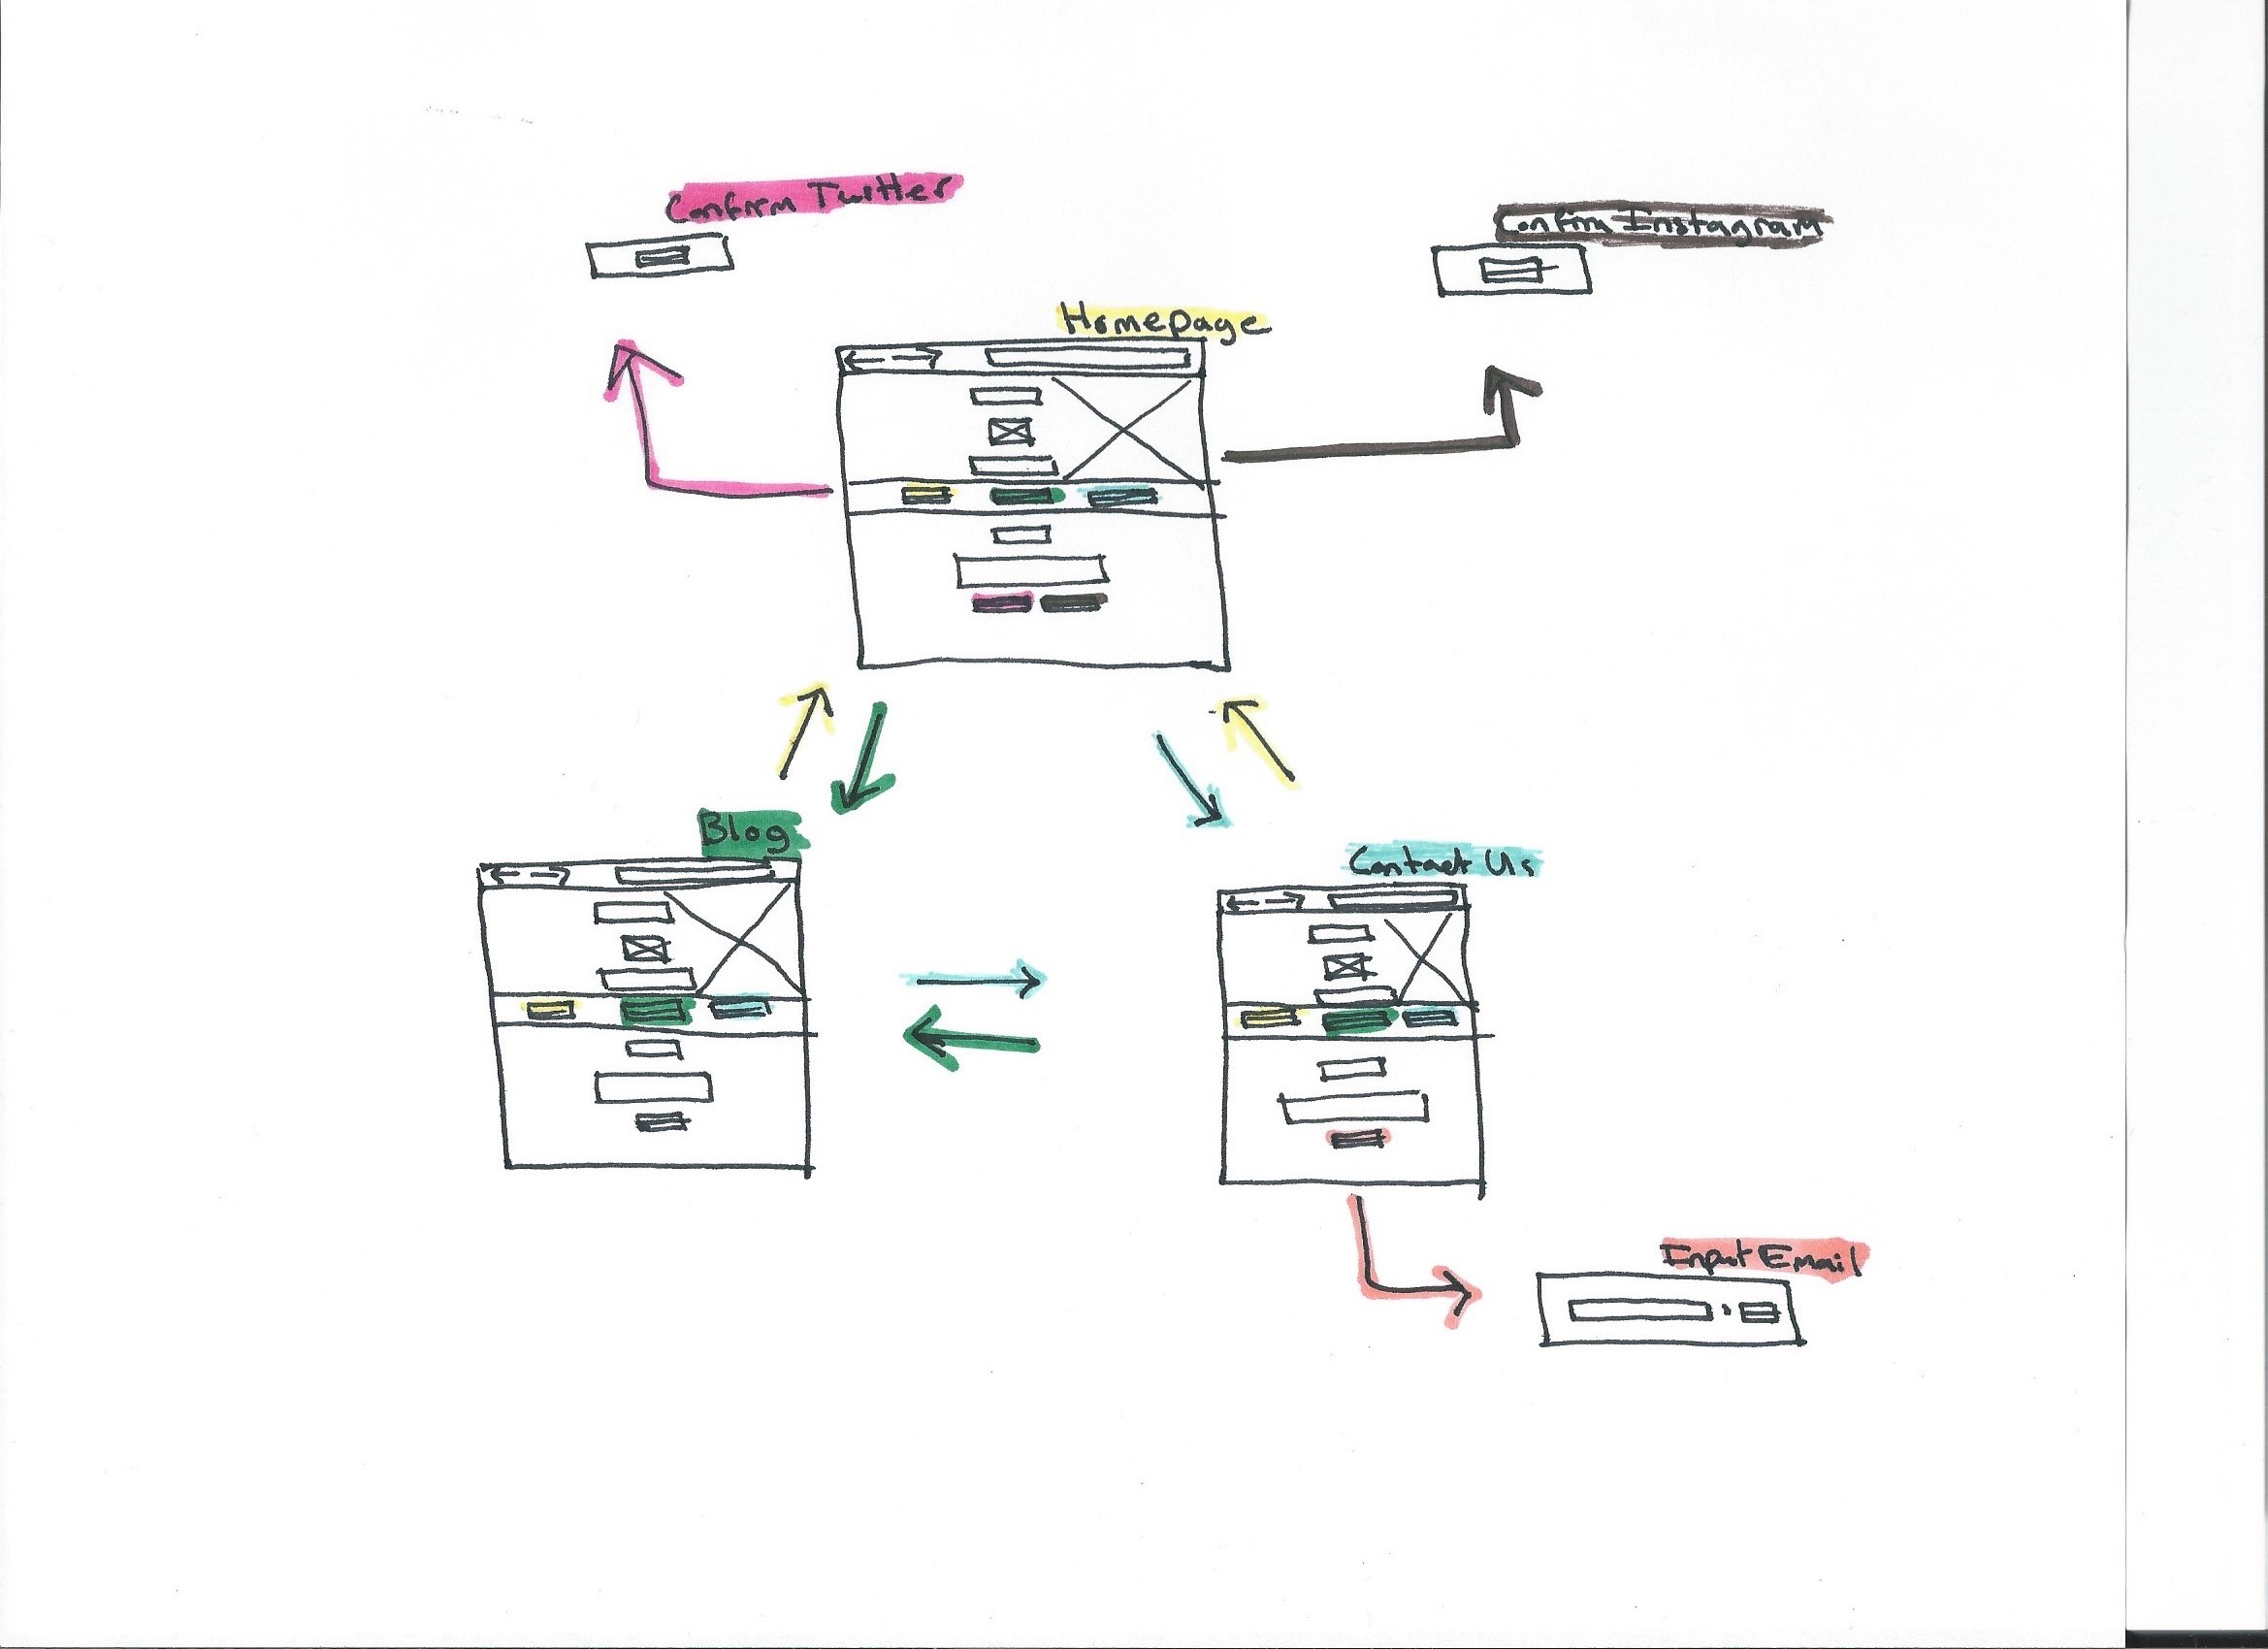 Confirm Twitter
Confirm Instagram
Homepage
Blog
Contact Us
Input Email